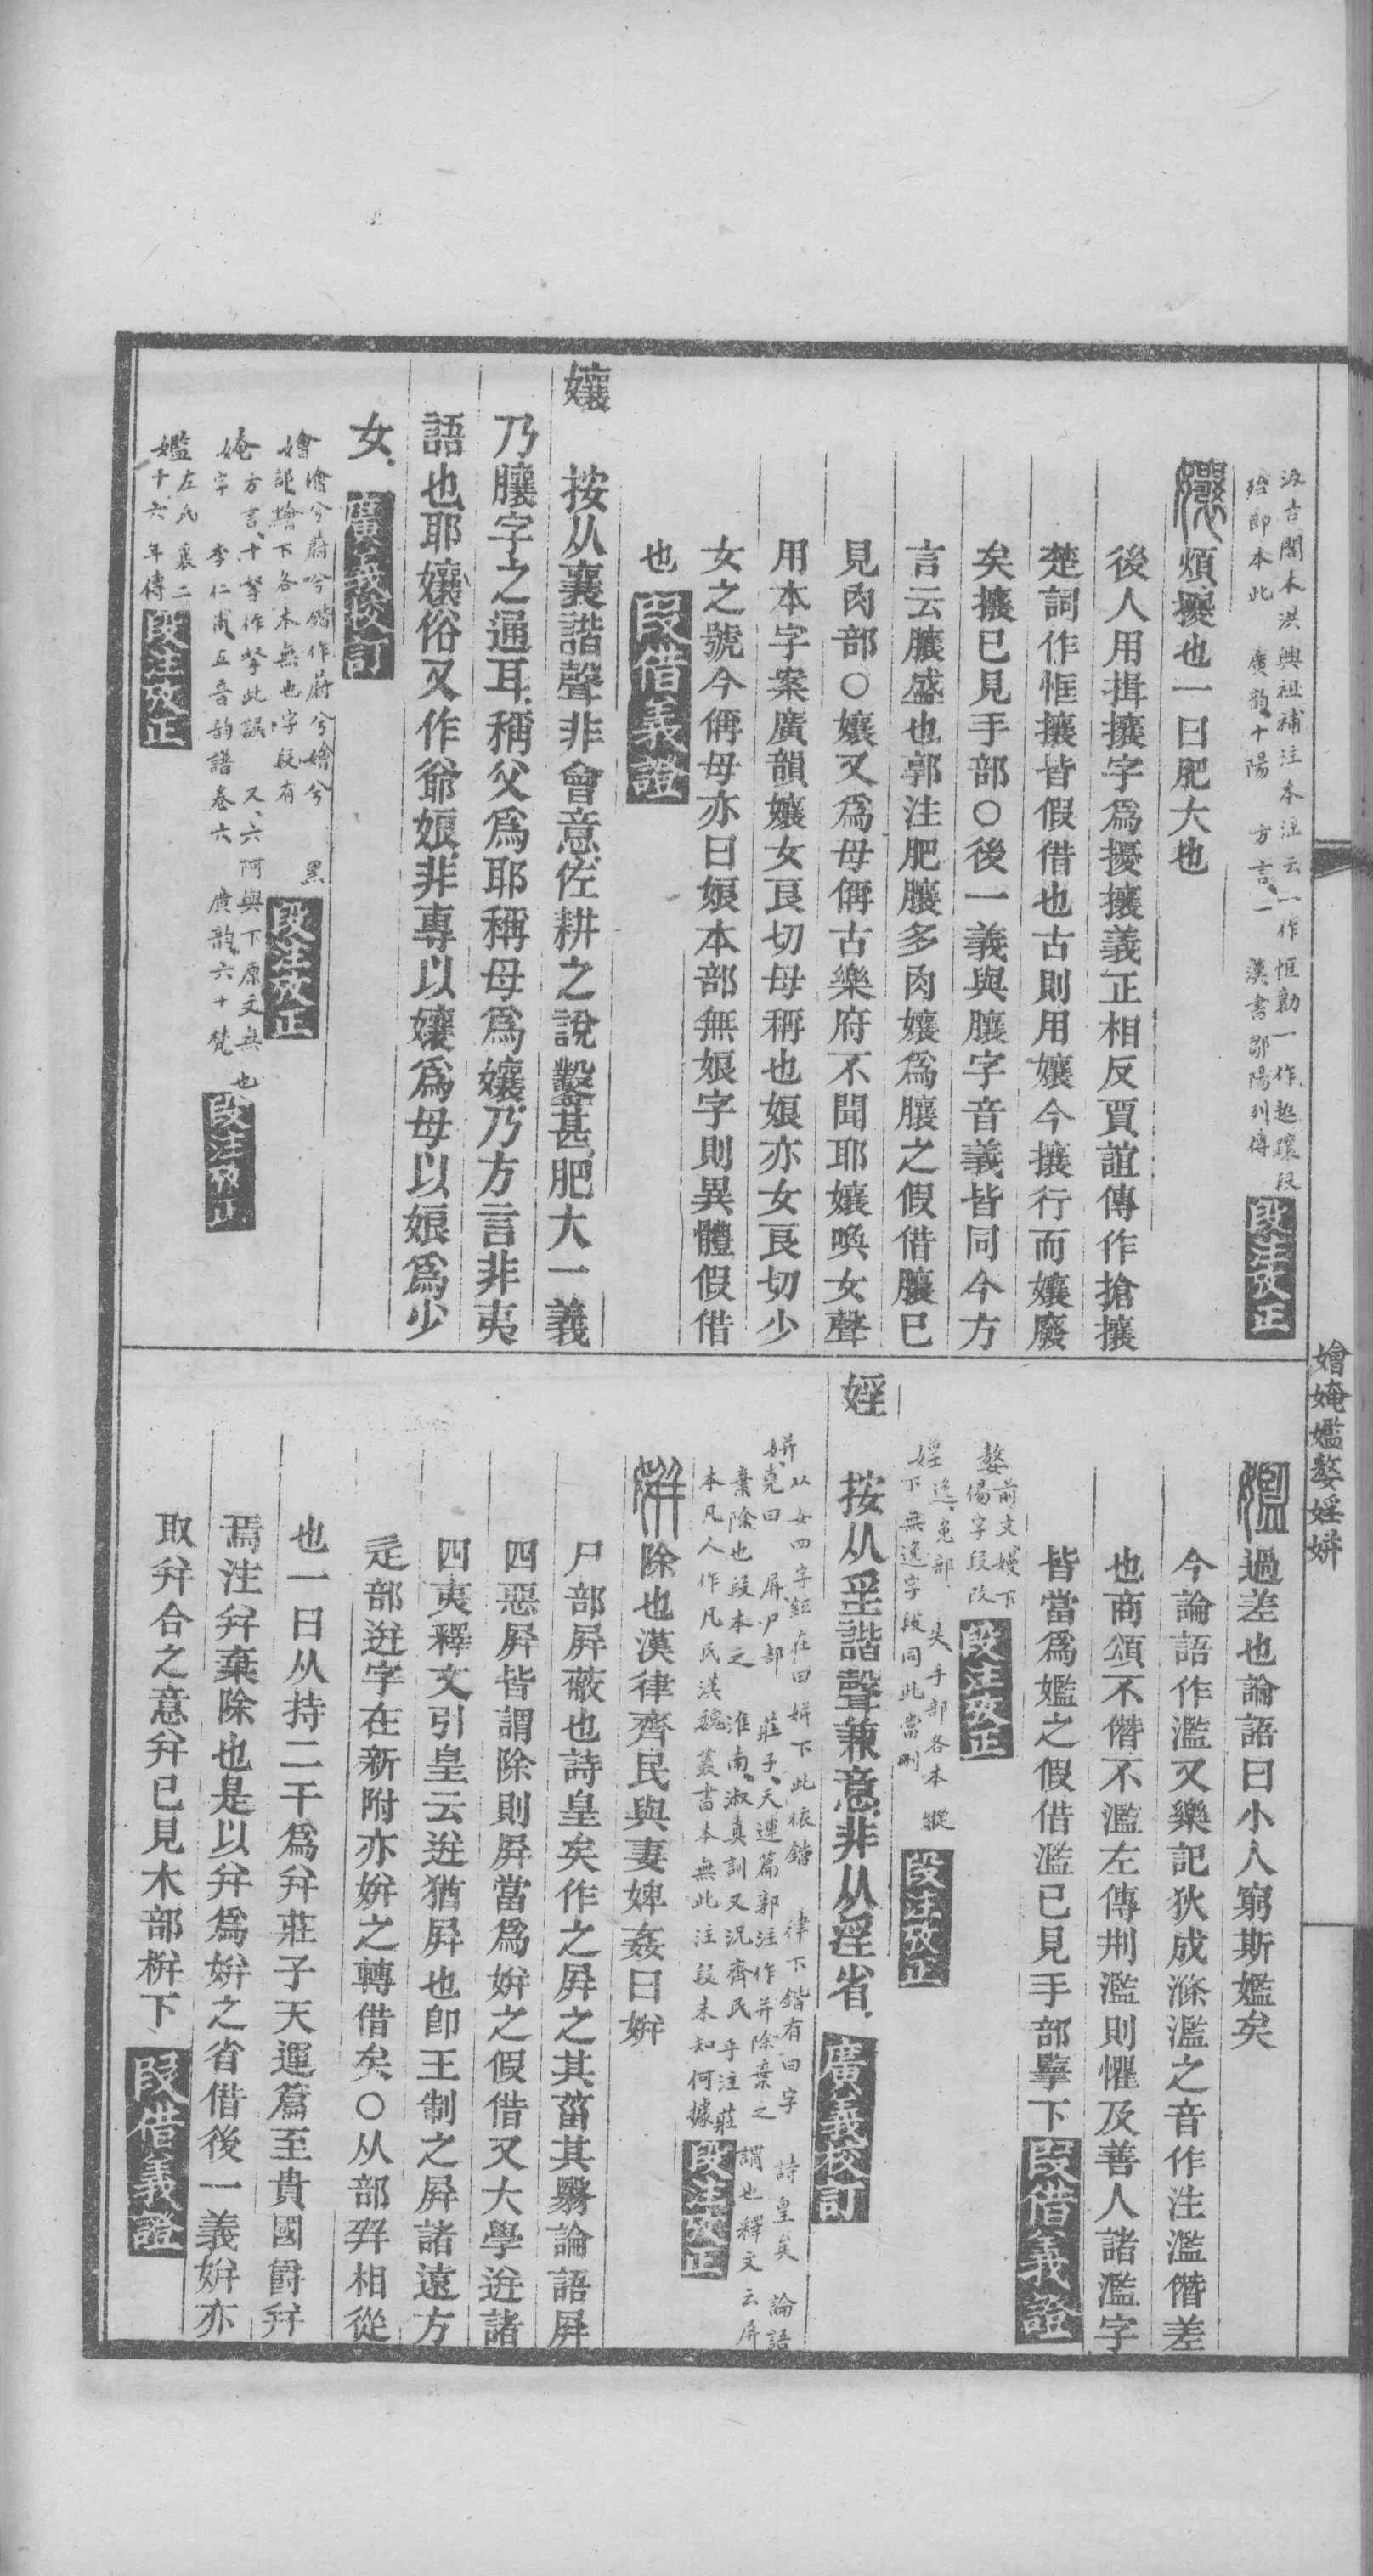 汲古閣本洪興祖補注本注云一作恇勷一作趨瓖段
殆即本此　廣韵十陽　方言一　漢書鄒陽列傳
段注攷正
孃煩擾也一曰肥大也
後人用揖攘字爲擾攘義正相反賈誼傳作搶攘
楚詞作恇攘皆假借也古則用孃今攘行而孃廢
矣攘已見手部○後一義與臁字音義皆同今方
言云臁盛也郭注肥臁多肉孃爲臁之假借臁已
見肉部○孃又爲母偁古樂府不聞耶孃喚女聲
用本字案廣韻孃女良切母稱也娘亦女良切少
女之號今偁母亦曰娘本部無娘字則異體假借
也段借義證
孃
按从襄諧聲非會意佐耕之說鑿甚肥大一義
乃臁字之通耳稱父爲耶稱母爲孃乃方言非夷
語也耶孃俗又作爺娘非專以孃爲母以娘爲少
女廣義校訂
嬒　澮兮蔚兮鍇作蔚兮嬒兮　黑
部䵳下各本無也字段有
段注攷正
媕　方言十拏作挐此誤　又六阿與下原文無也
字　李仁甫五音韵譜卷六　廣韵六十梵
段注攷正
㜮　左氏襄二
十六年傳段注攷正
嬒媕㜮嫯婬姘
㜮過差也論語曰小人窮斯㜮矣
今論語作濫又樂記狄成滌濫之音作注濫僭差
也商頌不僭不濫左傳刑濫則懼及善人諸濫字
皆當爲㜮之假借濫已見手部擥下段借義證
嫯　前文嫚下
傷字段改
段注攷正
婬　逸兔部　失手部各本　縱
下無逸字段同此當刪
段注攷正
婬
按从𡈼諧聲兼意非从淫省廣義校訂
姘　从女四字鉉在曰姘下此依鍇　律下鍇有曰字　詩皇矣　論語
堯曰　屏尸部　莊子天運篇郭注作并除棄之謂也釋文云屏
棄除也段本之　淮南俶真訓又況齊民乎注莊
本凡人作凡民漢魏叢書本無此注段未知何據
段注攷正
姘除也漢律齊民與妻婢姦曰姘
尸部屛蔽也詩皇矣作之屛之其菑其翳論語屛
四惡屛皆謂除則屛當爲姘之假借又大學迸諸
四夷釋文引皇云迸猶屛也卽王制之屛諸遠方
辵部迸字在新附亦姘之轉借矣○从部幷相從
也一曰从持二干爲幷莊子天運篇至貴國爵幷
焉注幷棄除也是以幷爲姘之省借後一義姘亦
取幷合之意幷已見木部栟下段借義證